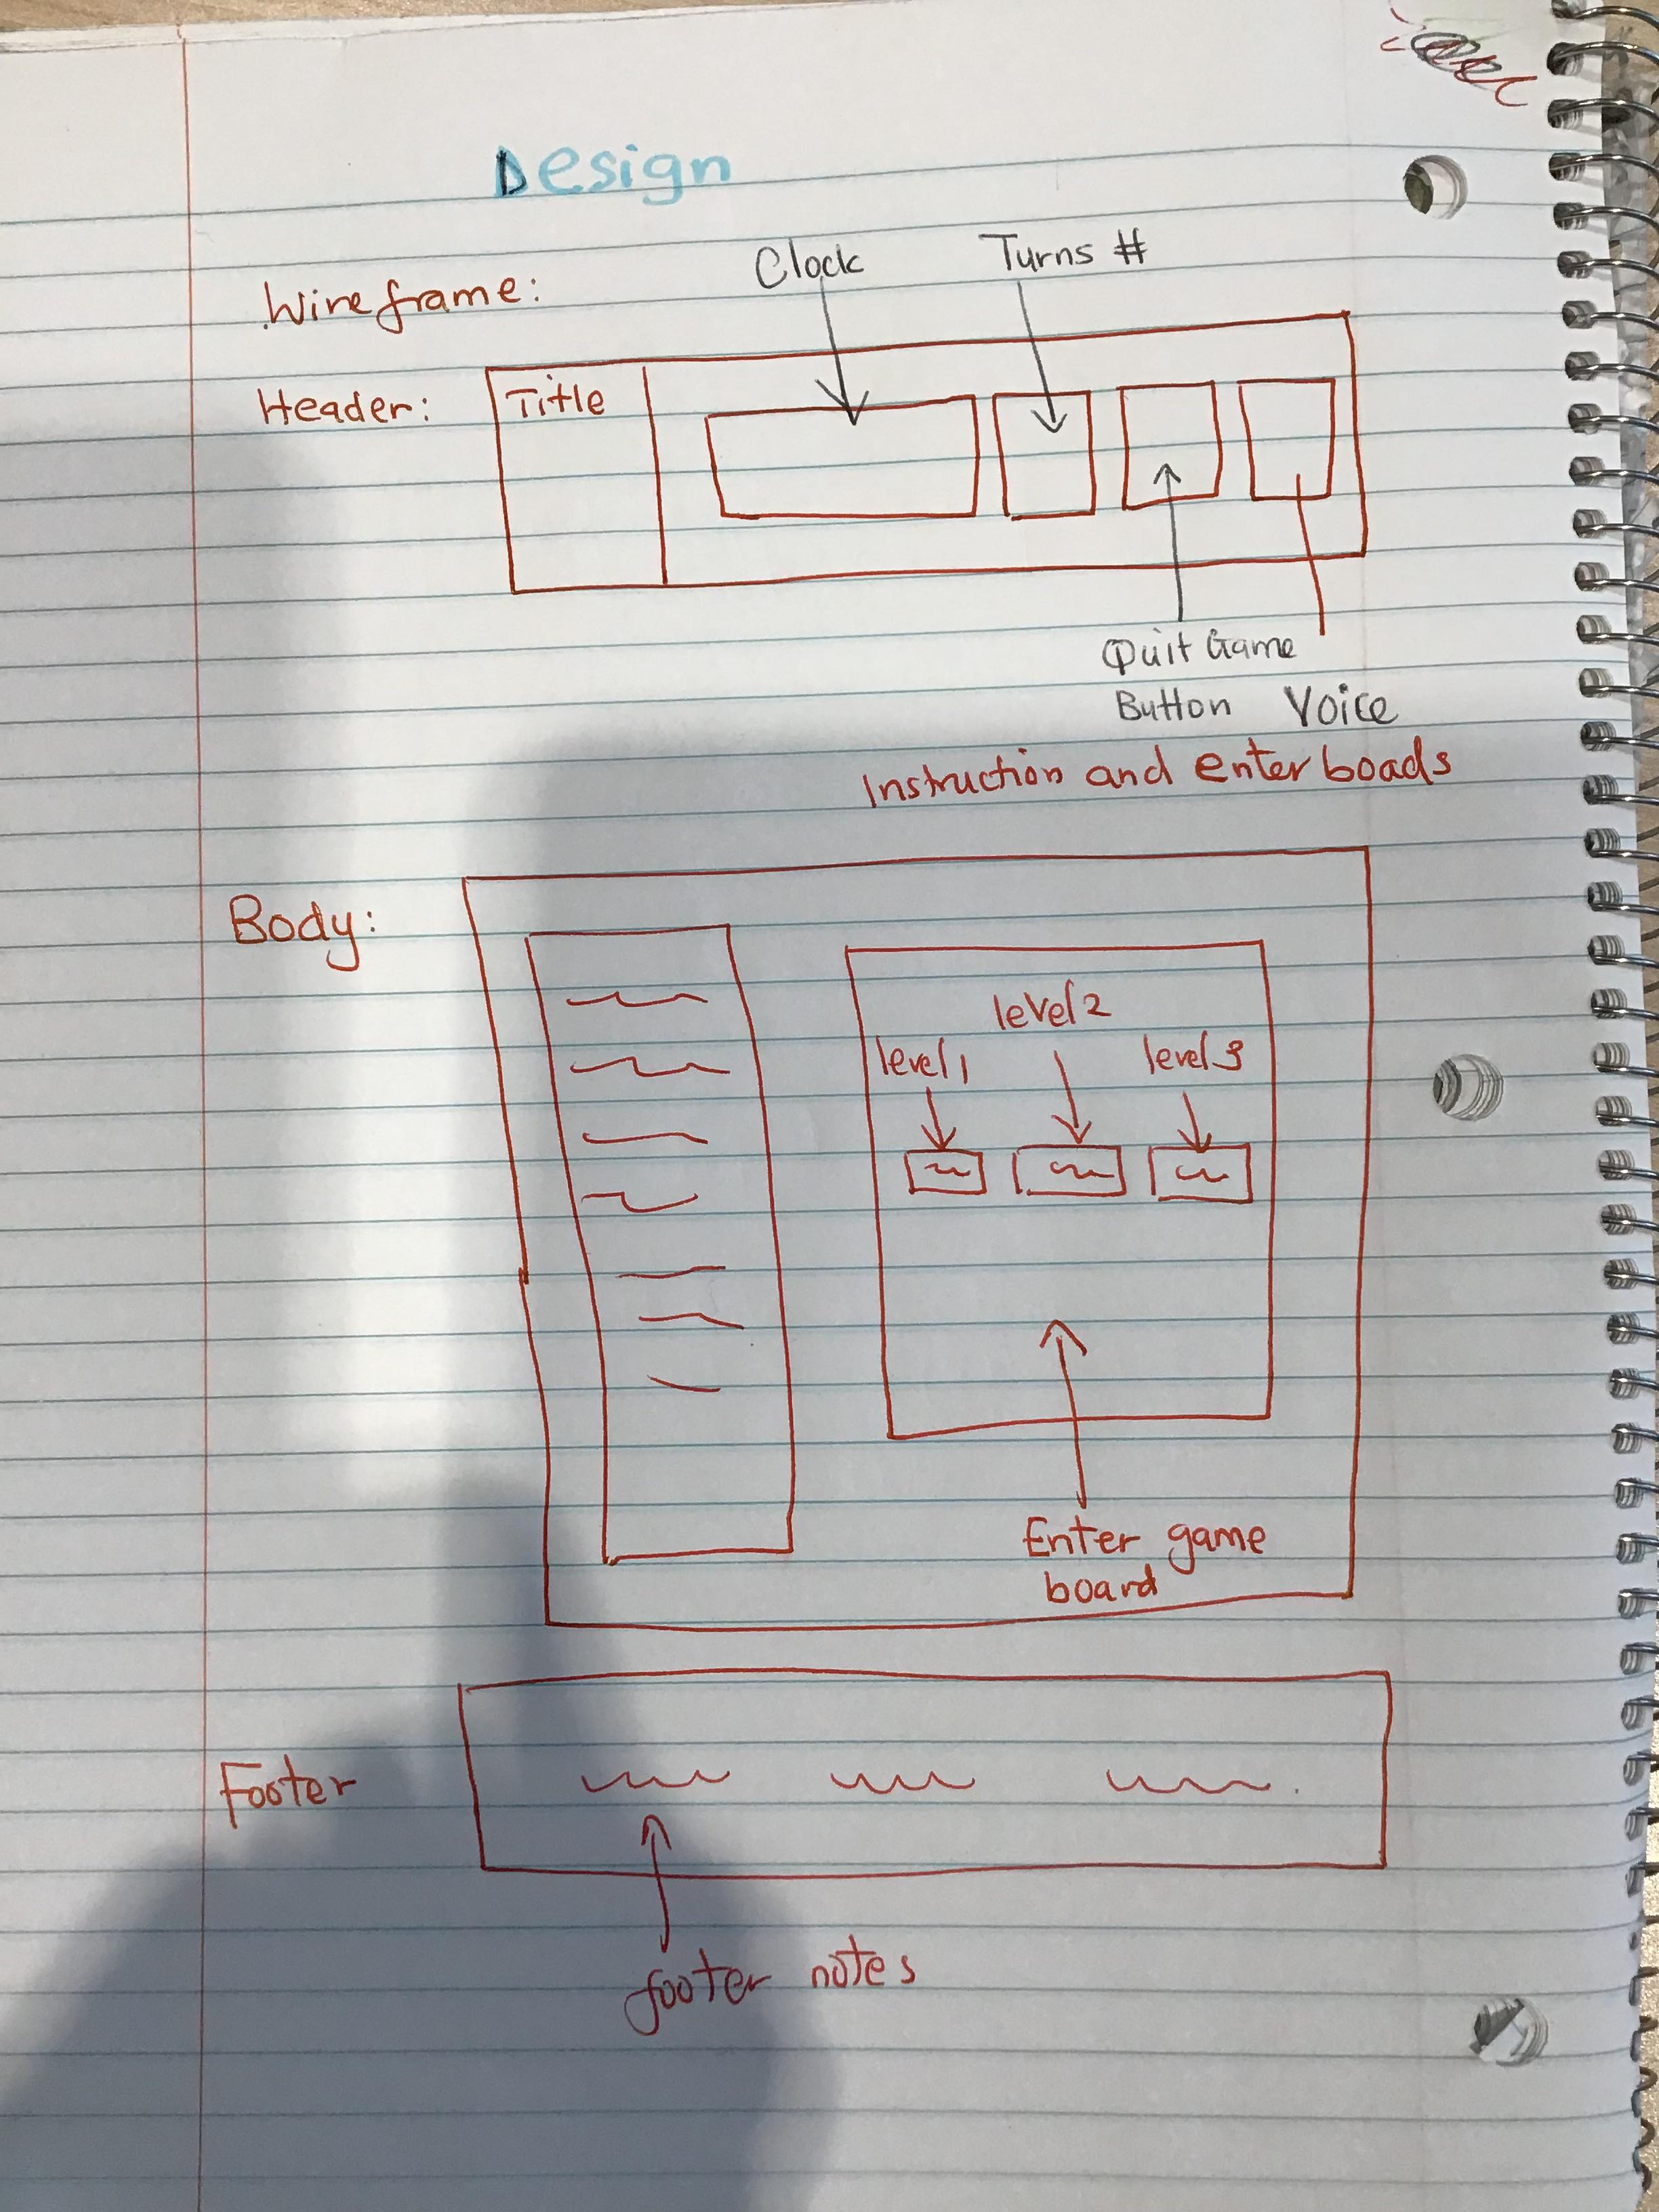 Design
Clock
Turns #
Wireframe:
Header:
Title
Quit Game
Button
Voice
Instruction and enter boads
Body:
level 2
level 1
level 3
Enter game
board
Footer
footer notes